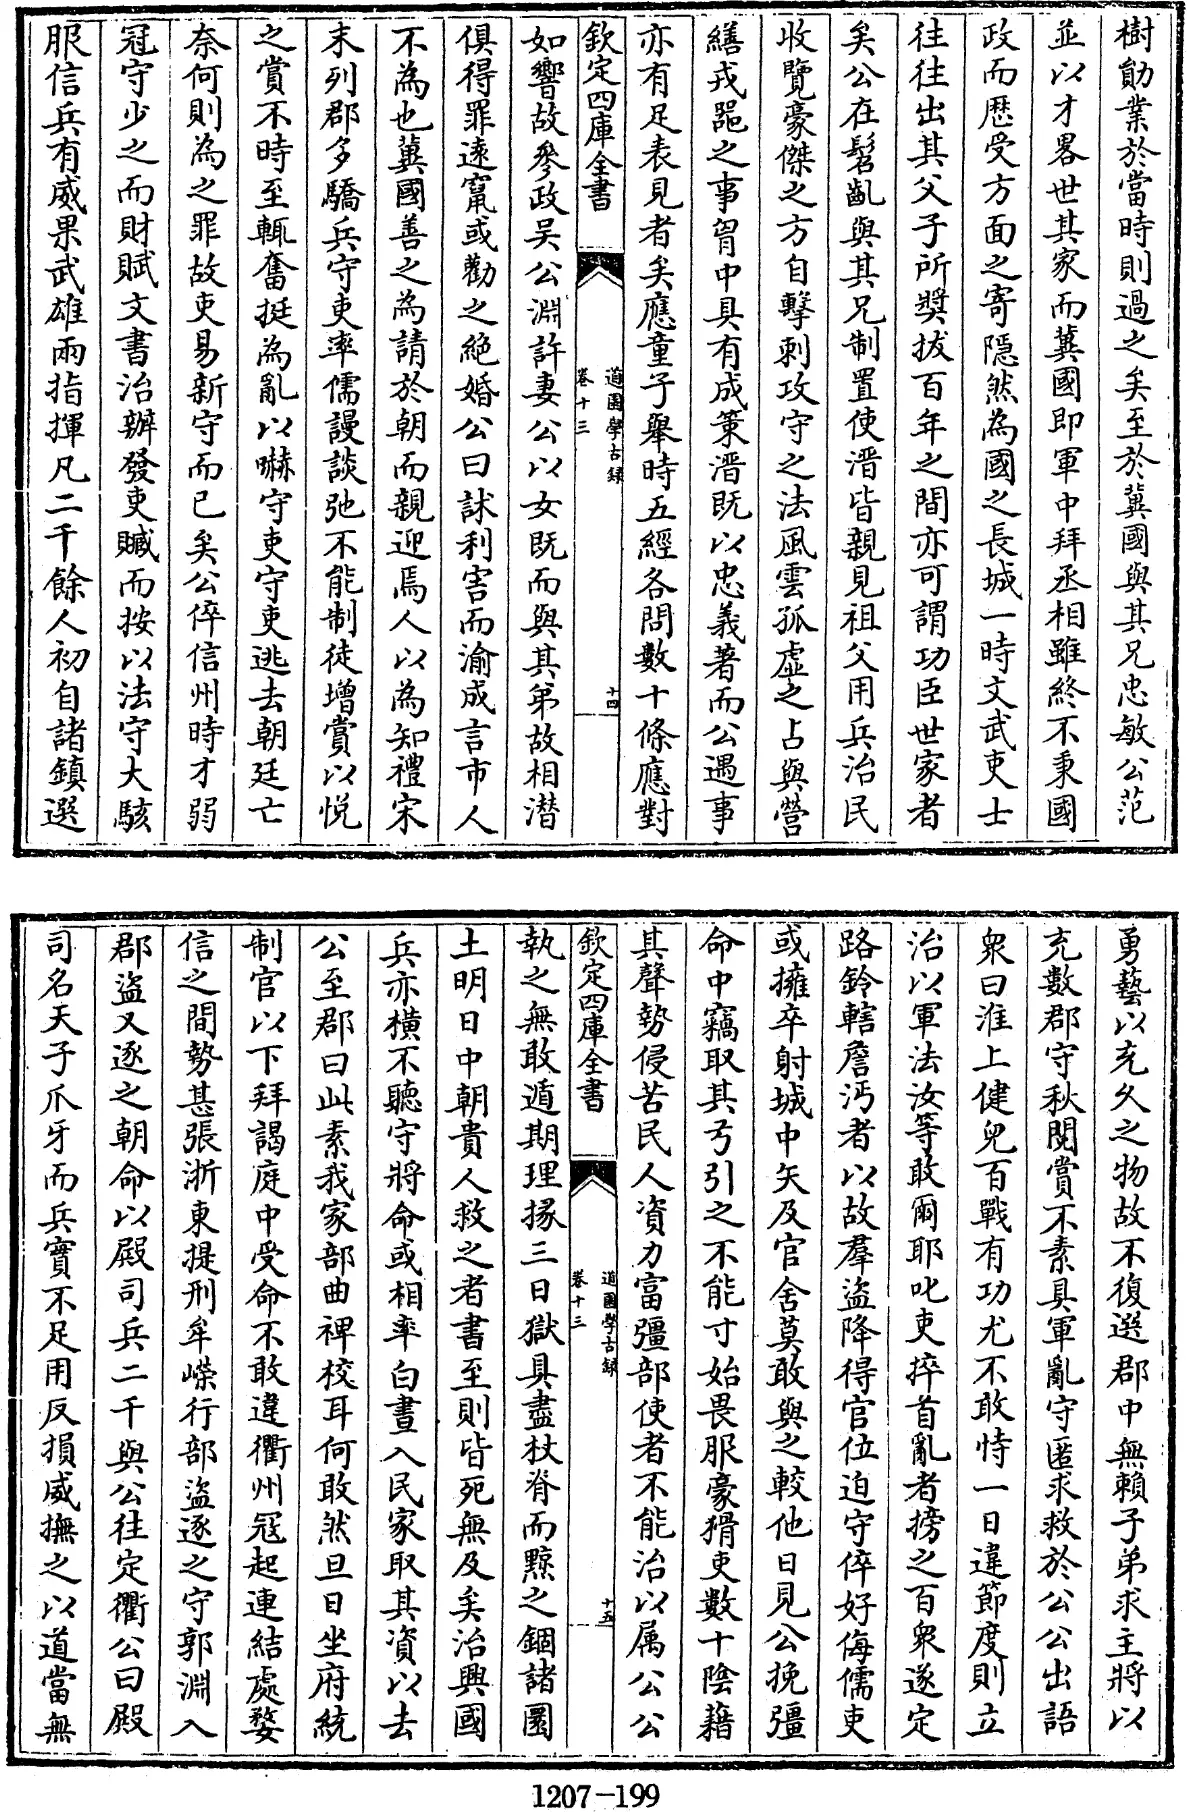 樹勛業於當時則過之矣至於冀國與其兄忠敏公范
並以才畧世其家而冀國即軍中拜丞相雖終不秉國
政而歴受方面之寄隱然為國之長城一時文武吏士
往往出其父子所奬拔百年之間亦可謂功臣世家者
矣公在髫齔與其兄制置使溍皆親見祖父用兵治民
收覽豪傑之方自擊刺攻守之法風雲孤虛之占與營
繕戎器之事胷中具有成筞溍既以忠義著而公遇事
亦有足表見者矣應童子舉時五經各問數十條應對
欽定四庫全書
道園學古録
卷十三
十四
如響故參政吴公淵許妻公以女既而與其弟故相潛
俱得罪逺竄或勸之絶婚公曰訹利害而渝成言市人
不為也冀國善之為請於朝而親迎焉人以為知禮宋
末列郡多驕兵守吏率儒謾談弛不能制徒增賞以悦
之賞不時至輒奮挺為亂以嚇守吏守吏逃去朝廷亡
奈何則為之罪故吏易新守而已矣公倅信州時才弱
冠守少之而財賦文書治辦發吏贓而按以法守大駭
服信兵有威果武雄兩指揮凡二千餘人初自諸鎮選
勇藝以充久之物故不復選郡中無賴子弟求主將以
充數郡守秋閲賞不素具軍亂守匿求救於公公出語
衆曰淮上健兒百戰有功尤不敢恃一日違節度則立
治以軍法汝等敢爾耶叱吏捽首亂者搒之百衆遂定
路鈐轄詹沔者以故羣盜降得官位迫守倅好侮儒吏
或擁卒射城中矢及官舍莫敢與之較他日見公挽彊
命中竊取其弓引之不能寸始畏服豪猾吏數十陰藉
其聲勢侵苦民人資力富彊部使者不能治以属公公
欽定四庫全書
道園學古録
卷十三
十五
執之無敢遁期理掾三日獄具盡杖脊而黥之錮諸圜
土明日中朝貴人救之者書至則皆死無及矣治興國
兵亦横不聽守將命或相率白晝入民家取其資以去
公至郡曰此素我家部曲裨校耳何敢然旦日坐府統
制官以下拜謁庭中受命不敢違衢州冦起連結處婺
信之間勢甚張浙東提刑牟嶸行部盜逐之守郭淵入
郡盜又逐之朝命以殿司兵二千與公往定衢公曰殿
司名天子爪牙而兵實不足用反損威撫之以道當無
1207-199